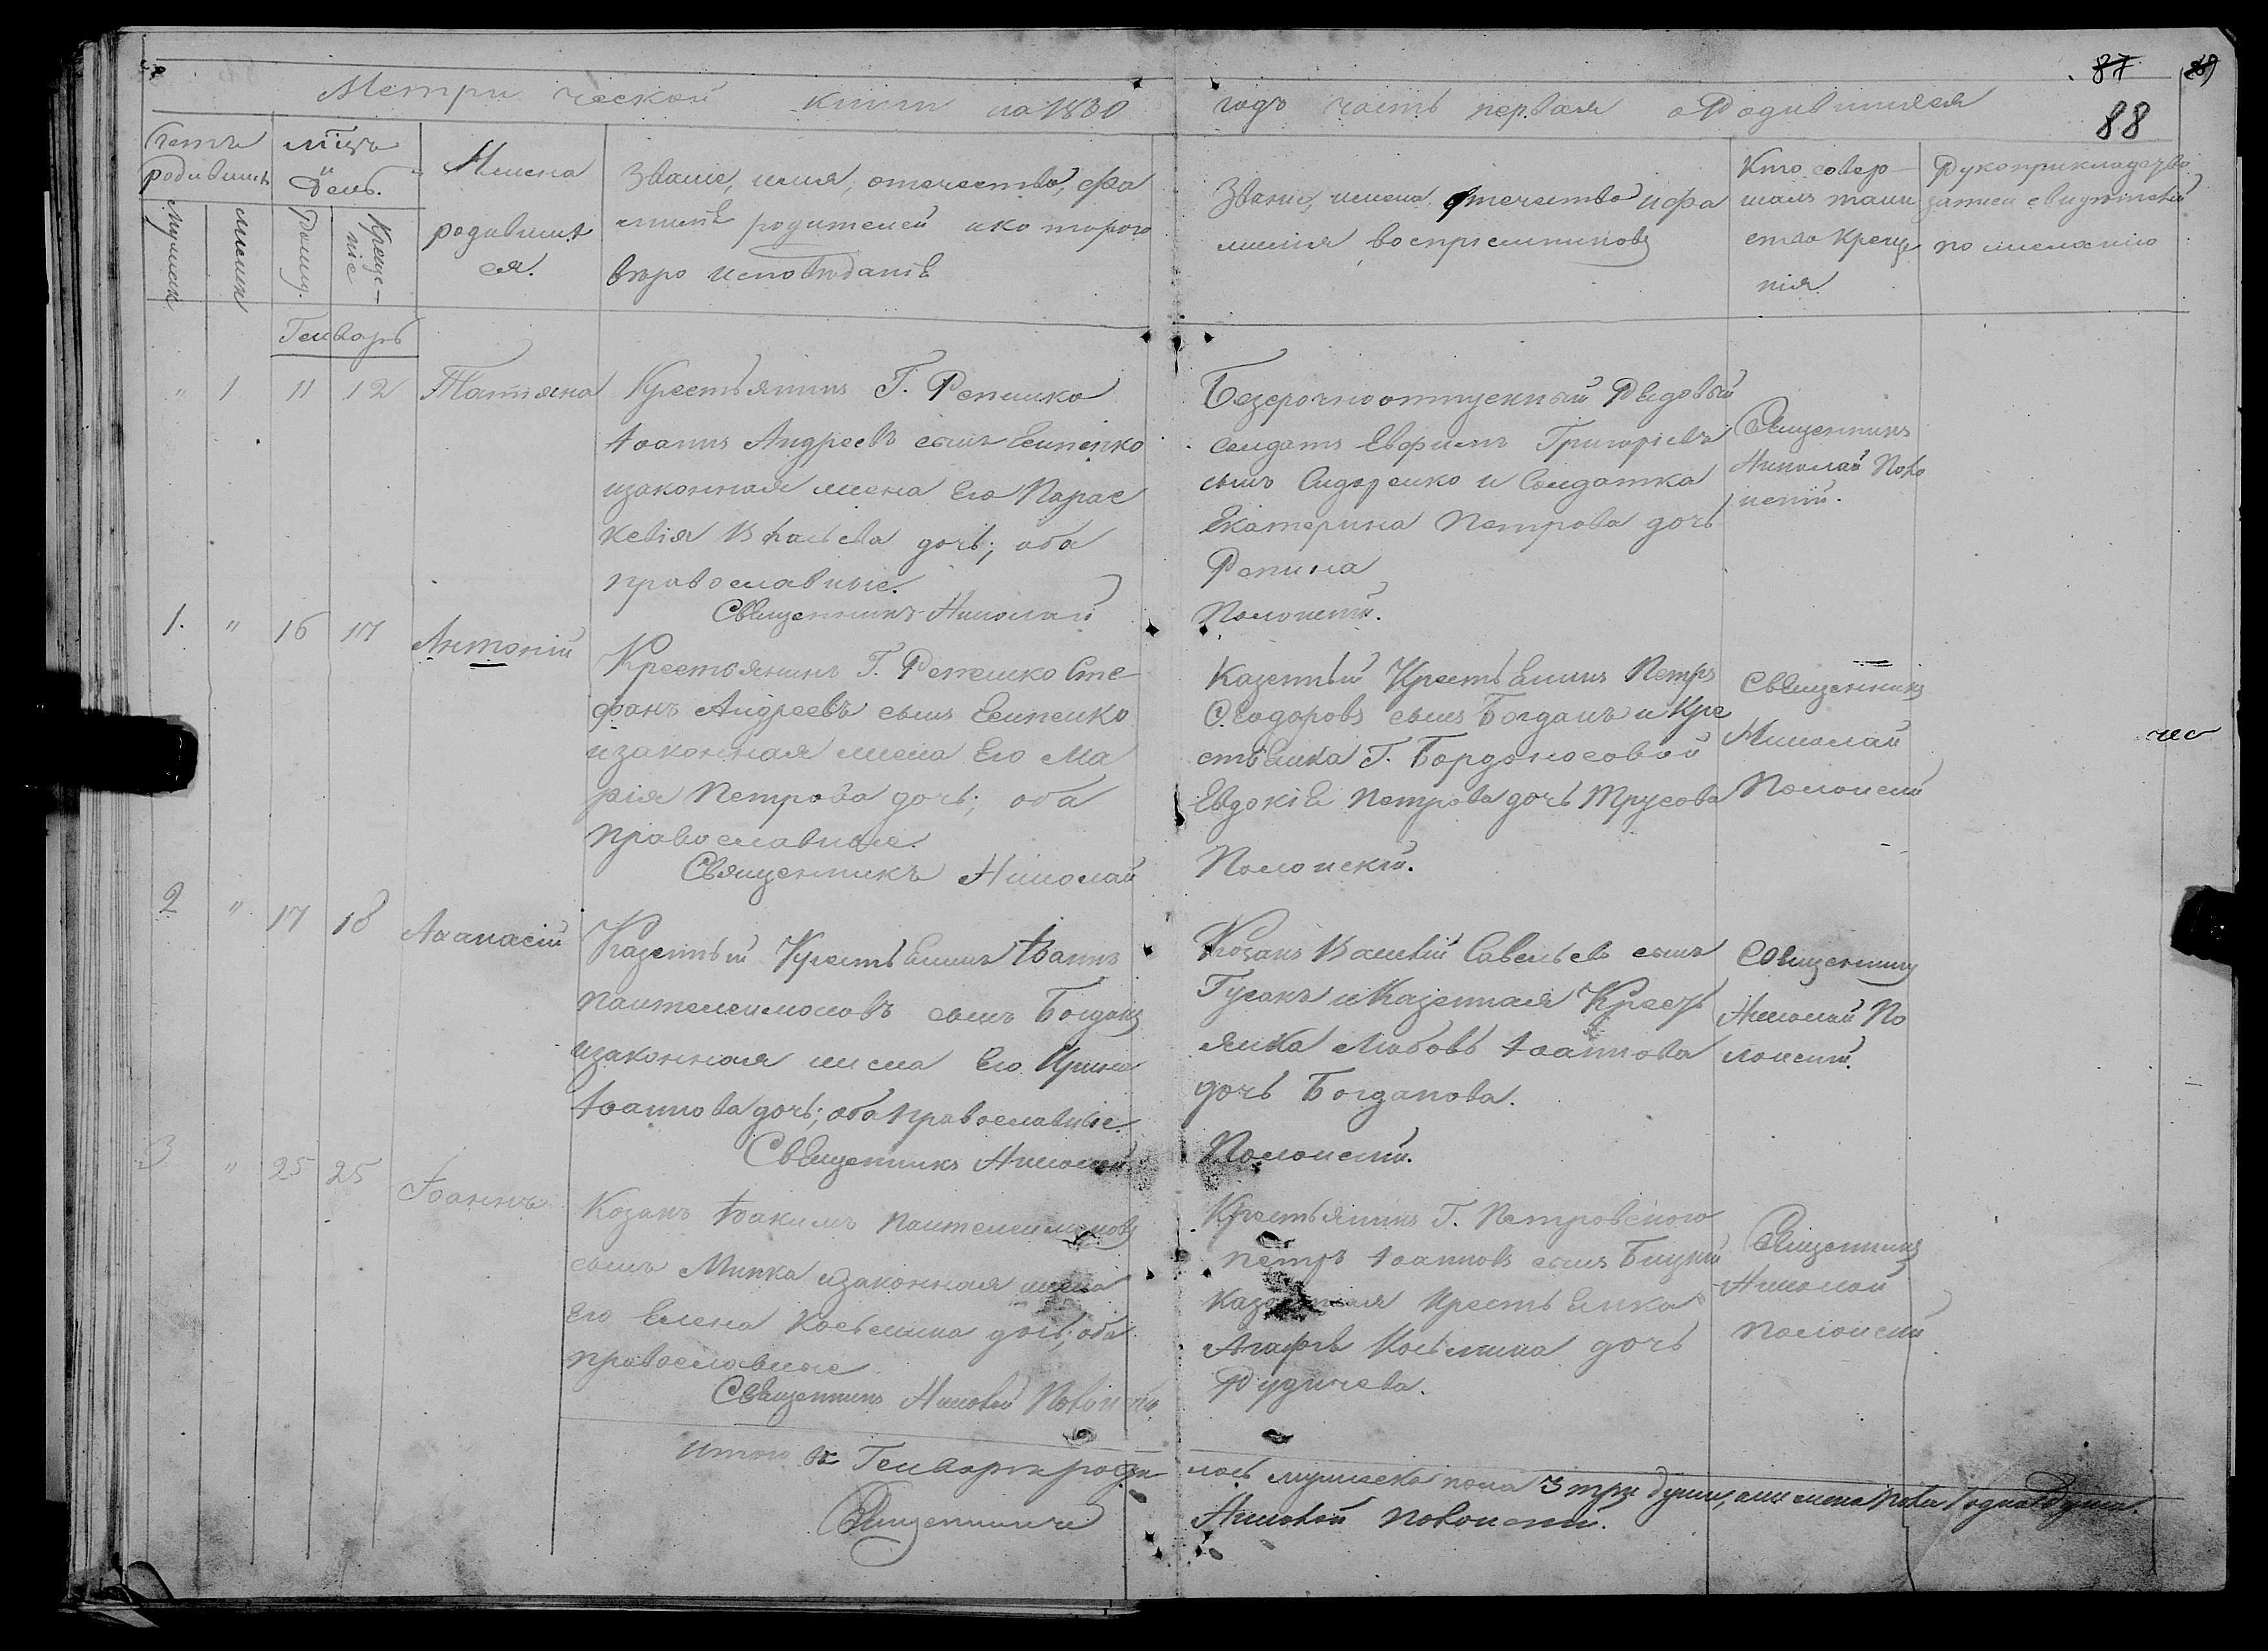 87
88
Метрической книги на 1830 годъ часть первая о Родившихся
Счетъ родившихся
Мужеска
Женска
Мцъ и День.
Рожд.
Крещеніе
Имена родившихся.
Званіе, имя, отечество, фа
милія родителей и которого
вѣро исповѣданія
Званіе, имена, отечество и фа
милія воспріемниковъ
Кто совер
шалъ таин
ство Креще
нія
Рукоприкладство
записи свидѣтелей
по желанію
Генварь
" 1 11 12 Татіяна
Крестьянинъ Г. Репешко
Іоаннъ Андреевъ сынъ Есипенко
и законная жена Его Парас
кевія дочь; оба
православные.
Священникъ Николай
Безсрочноотпускный Рядовый
солдатъ Евфимъ Григоріевъ
сынъ Сидоренко и Солдатка
Екатерина Петрова дочь
Репина
Полонскій.
Священникъ
Николай Поло
нскій.
1. " 16 17 Антоній
Крестьянинъ Г. Репешко Сте
фанъ Андреевъ сынъ Есипенко
и законная жена Его Ма
рія Петрова дочь; оба
Православные.
Священникъ Николай
Казенный Крестьянинъ Петръ
Ѳеодоровъ сынъ Богданъ и Кре
стьянка Г. Бордоносовой
Евдокія Петрова дочь Трусова
Полонскій.
Священникъ
Николай
Полонскій
2 " 17 18 Аѳанасій
Казенный Крестьянинъ Іоаннъ
Пантелеимоновъ сынъ Богданъ
и законная жена Его Ирина
Іоаннова дочь; оба Православные.
Священникъ Николай
Козакъ Василій Савельевъ сынъ
Гусакъ и Казенная Кресть
янка Любовь Іоаннова
дочь Богданова.
Полонскій.
Священникъ
Николай По
лонскій.
3 " 25 25 Іоаннъ
Козакъ Іоакимъ Пантелеимоновъ
сынъ Минка и законная жена
Его Елена Косьмина дочь; оба
православные
Священникъ Николай Полонскій
Крестьянинъ Г. Петровского
Петръ Іоанновъ сынъ Бицкій
Казенная Крестьянка
Агафія Косьмина дочь
Рудичева.
Священникъ
Николай
Полонскій
Итого въ Генварѣ роди лось мужеска пола 3 три души, а женска пола 1 одна Душа.
Священникъ Николай Полонскій.